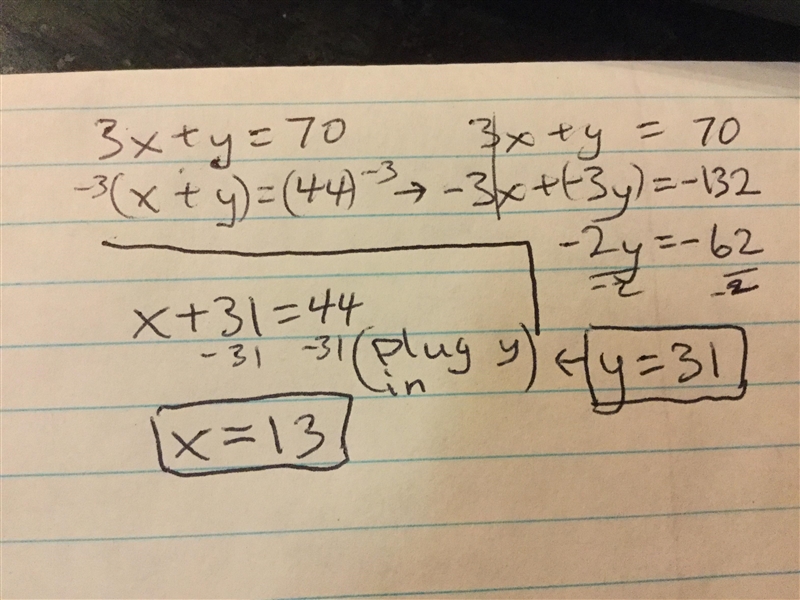 3x+y=70
-3(x+y)=(44)-3 → -3x+(-3y)=-132
3x+y = 70
-2y=-62
-2 -2
y=31
← (plug y in)
x+31=44
-31 -31
x=13